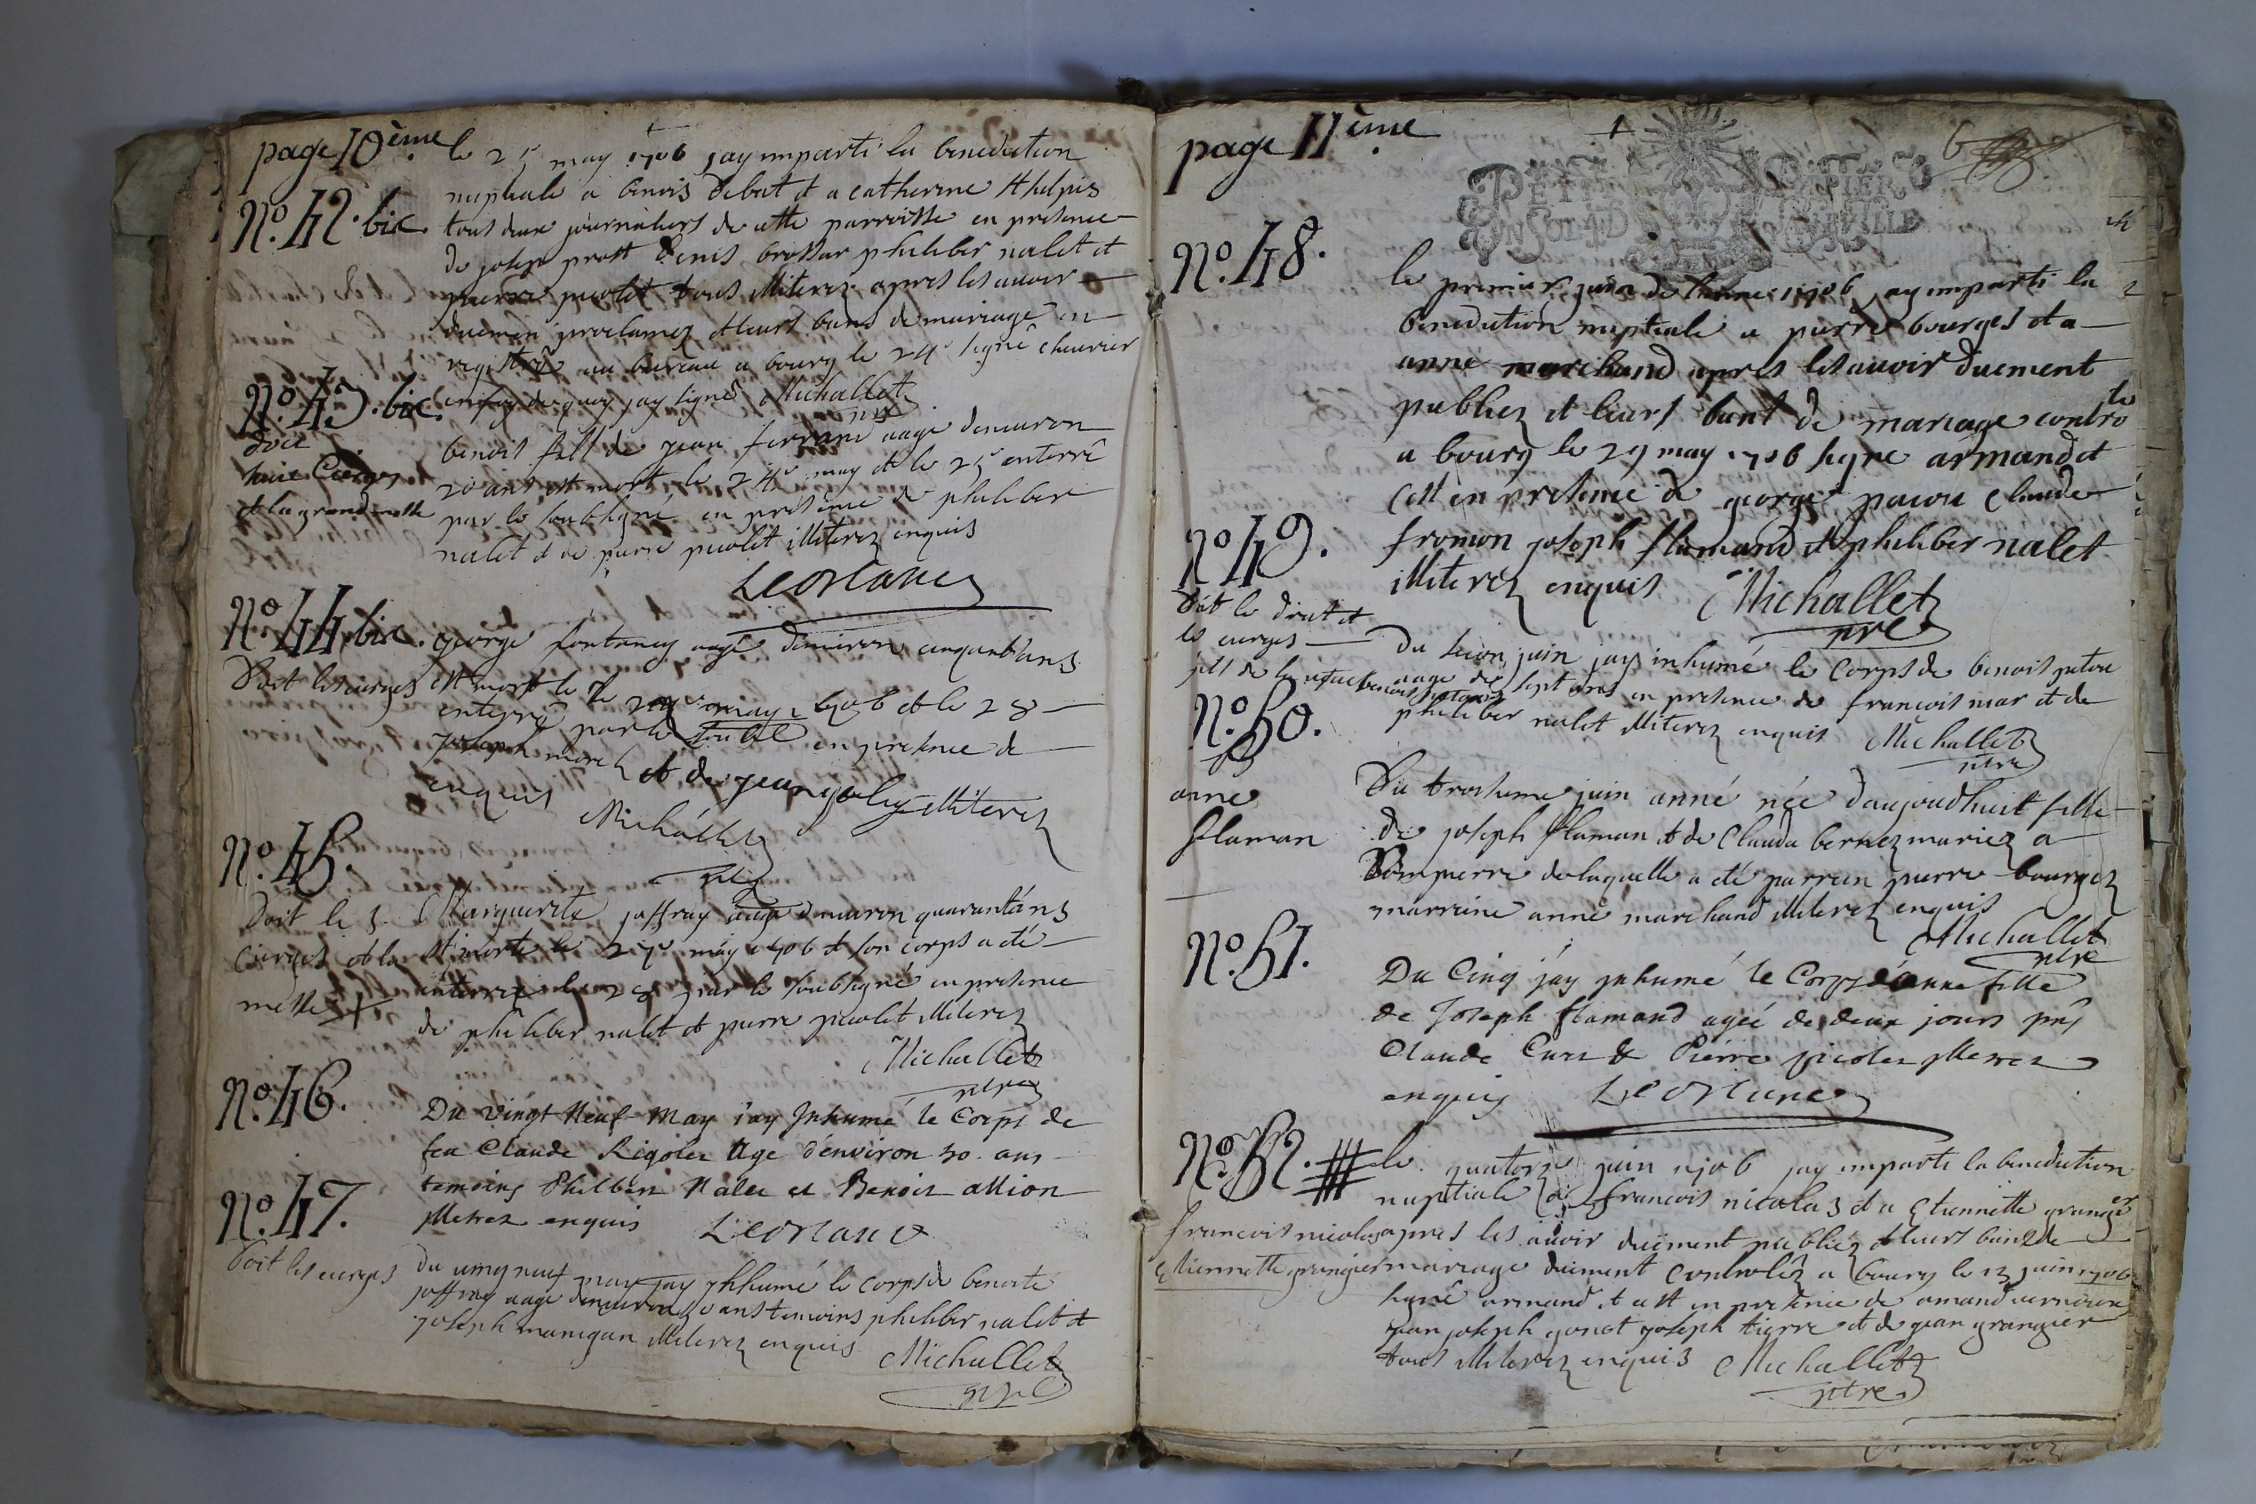 page 10ème
le 25 may 1706 jay imparti la benediction
nuptiale a benois debat et a catherine
tous deux journaliers de cette parroisse en presence
de joseph prost denis brossar philiber nalet et
pierre picolet tous illiterez apres les avoir
duemen proclamez et leurs bans de mariage en
registré au bureau a bourg le 24e signé chevrier
en foy de quoy jay signé Michallet
ptre
No. 42. bis.
No. 43. bis.
doit
huit Cierges
et la grand messe
benoit fils de jean ferrand aagé denviron
20 ans est mort le 24e may et le 25 enterré
par le soubsigné en presence de philiber
nalet et de pierre picolet illiterez enquis
Leorlane
No. 44. bis.
Doit les cierges
george fontenay aagé denviron cinquant'ans
est mort le 27e may 1706 et le 28
enterré par le en presence de
joseph morel et de jean joly illiterez
enquis Michallet
ptre
No. 45.
Doit le 3
Cierges et la
messe
Marguerite joffray aagé denviron quarant'ans
est morte le 27e may 1706 et son corps a été
enterré le 28 par le soubsigné en presence
de philiber nalet et pierre picolet illiterez
Michallet
ptre
No. 46.
Du vingt Neuf May j'ay Inhumé le Corps de
feu Claude Rigolez Agé d'environ 30 ans
temoins Philbert Nalet et Benoit allion
illetrez enquis Leorlane
No. 47.
Doit les cierges
du vingt neuf may jay ynhumé le corps de benoite
joffray aage denviron ans temoins philiber nalet et
joseph manigan illiterez enquis Michallet
ptre
page 11ème
6
No. 48.
le premier juin de l'annee 1706 jay imparti la
benediction nuptiale a pierre bourges et a
anne marchand apres les avoir duement
publiez et leurs bans de mariage contro
lé
a bourg le 29 may 1706 signe armand et
cest en presence de george pacou claude
fromon joseph flamand et philiber nalet
illiterez enquis Michallet
ptre
No. 49.
Doit le droit et
les cierges
Du second juin jay inhumé le corps de benoit
aage de sept ans en presence de francois mar et de
philiber nalet illiterez enquis Michallet
ptre
No. 50.
anne
flaman
Du troisieme juin anne née daujoudhuit fille
de joseph flaman et de Clauda bernez mariez a
Dompierre de laquelle a été parrein pierre bourgez
marreine anne marchand illiterez enquis
Michallet
ptre
No. 51.
Du Cinq j'ay ynhumé le Corps d'anne fille
de Joseph flamand agée de deux jours pnt
Claude Curt & Pierre picolez illetrez
enquis Leorlane
No. 52.
francois nicolas
Etiennette grangier
le quatorze juin 1706 jay imparti la benediction
nuptiale a francois nicolas et a Etiennette grangier
apres les avoir duement publiez et leurs bans de
mariage duement controlez a bourg le 12 juin 1706
signé armand et cest en presence de amand verneure
jean joseph gonet joseph tierre et de jean grangier
tous illiterez enquis Michallet
ptre